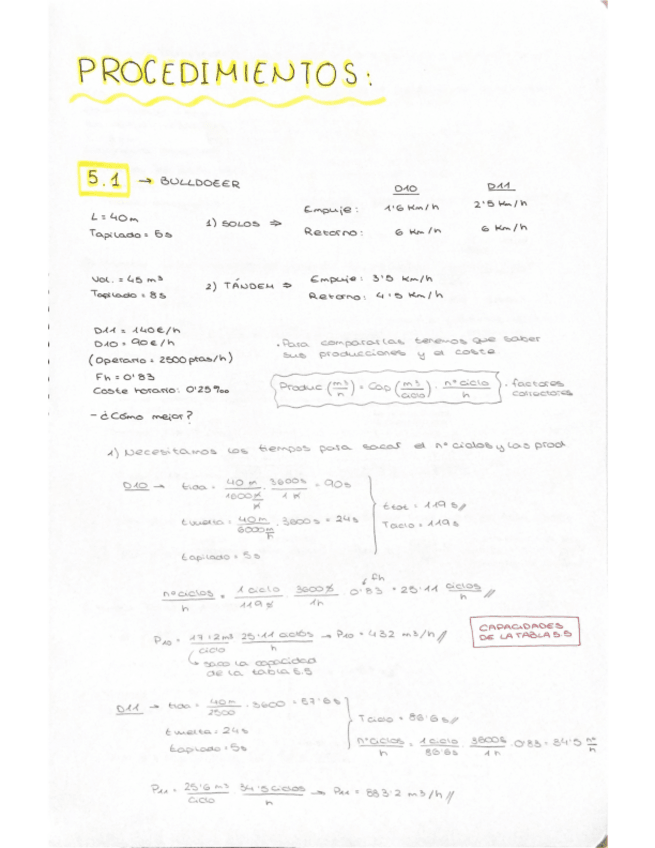 PROCEDIMIENTOS:
5.1 → BULLDOEER
D10 D11
L = 40m 1) SOLOS ⇒ Empuje: 1'6 Km/h 2'5 Km/h
Tapilado = 5s Retorno: 6 Km/h 6 Km/h
Vol. = 45 m³ 2) TÁNDEM ⇒ Empuje: 3'5 Km/h
Tapilado = 8s Retorno: 4'5 Km/h
D11 = 140€/h
D10 = 90€/h
(Operario = 2500 ptas/h)
Fh = 0'83
Coste horario: 0'25‰
- ¿Cómo mejor?
· Para compararlas tenemos que saber
sus producciones y el coste
Produc (m³/h) = Cap (m³/ciclo) · nº ciclo/h · factores correctores
1) Necesitamos los tiempos para sacar el nº ciclos y las prod
D10 → tida = 40 m/1600 m/h · 3600s/1h = 90s
tvuelta = 40m/6000m/h · 3600s = 24s
tapilado = 5s
ttot = 119s//
Tciclo = 119s
nº ciclos/h = 1 ciclo/119s · 3600s/1h · 0'83 = 25'11 ciclos/h //
Fh
P10 = 17'2m³/ciclo · 25'11 ciclos/h → P10 = 432 m³/h //
↳ saco la capacidad
de la tabla 5.5
CAPACIDADES
DE LA TABLA 5.5
D11 → tida = 40m/2500 · 3600 = 57'6s
tvuelta = 24s
tapilado = 5s
Tciclo = 86'6s//
nº ciclos/h = 1 ciclo/86'6s · 3600s/1h · 0'83 = 34'5 nº/h
P11 = 25'6 m³/ciclo · 34'5 ciclos/h → P11 = 883'2 m³/h //